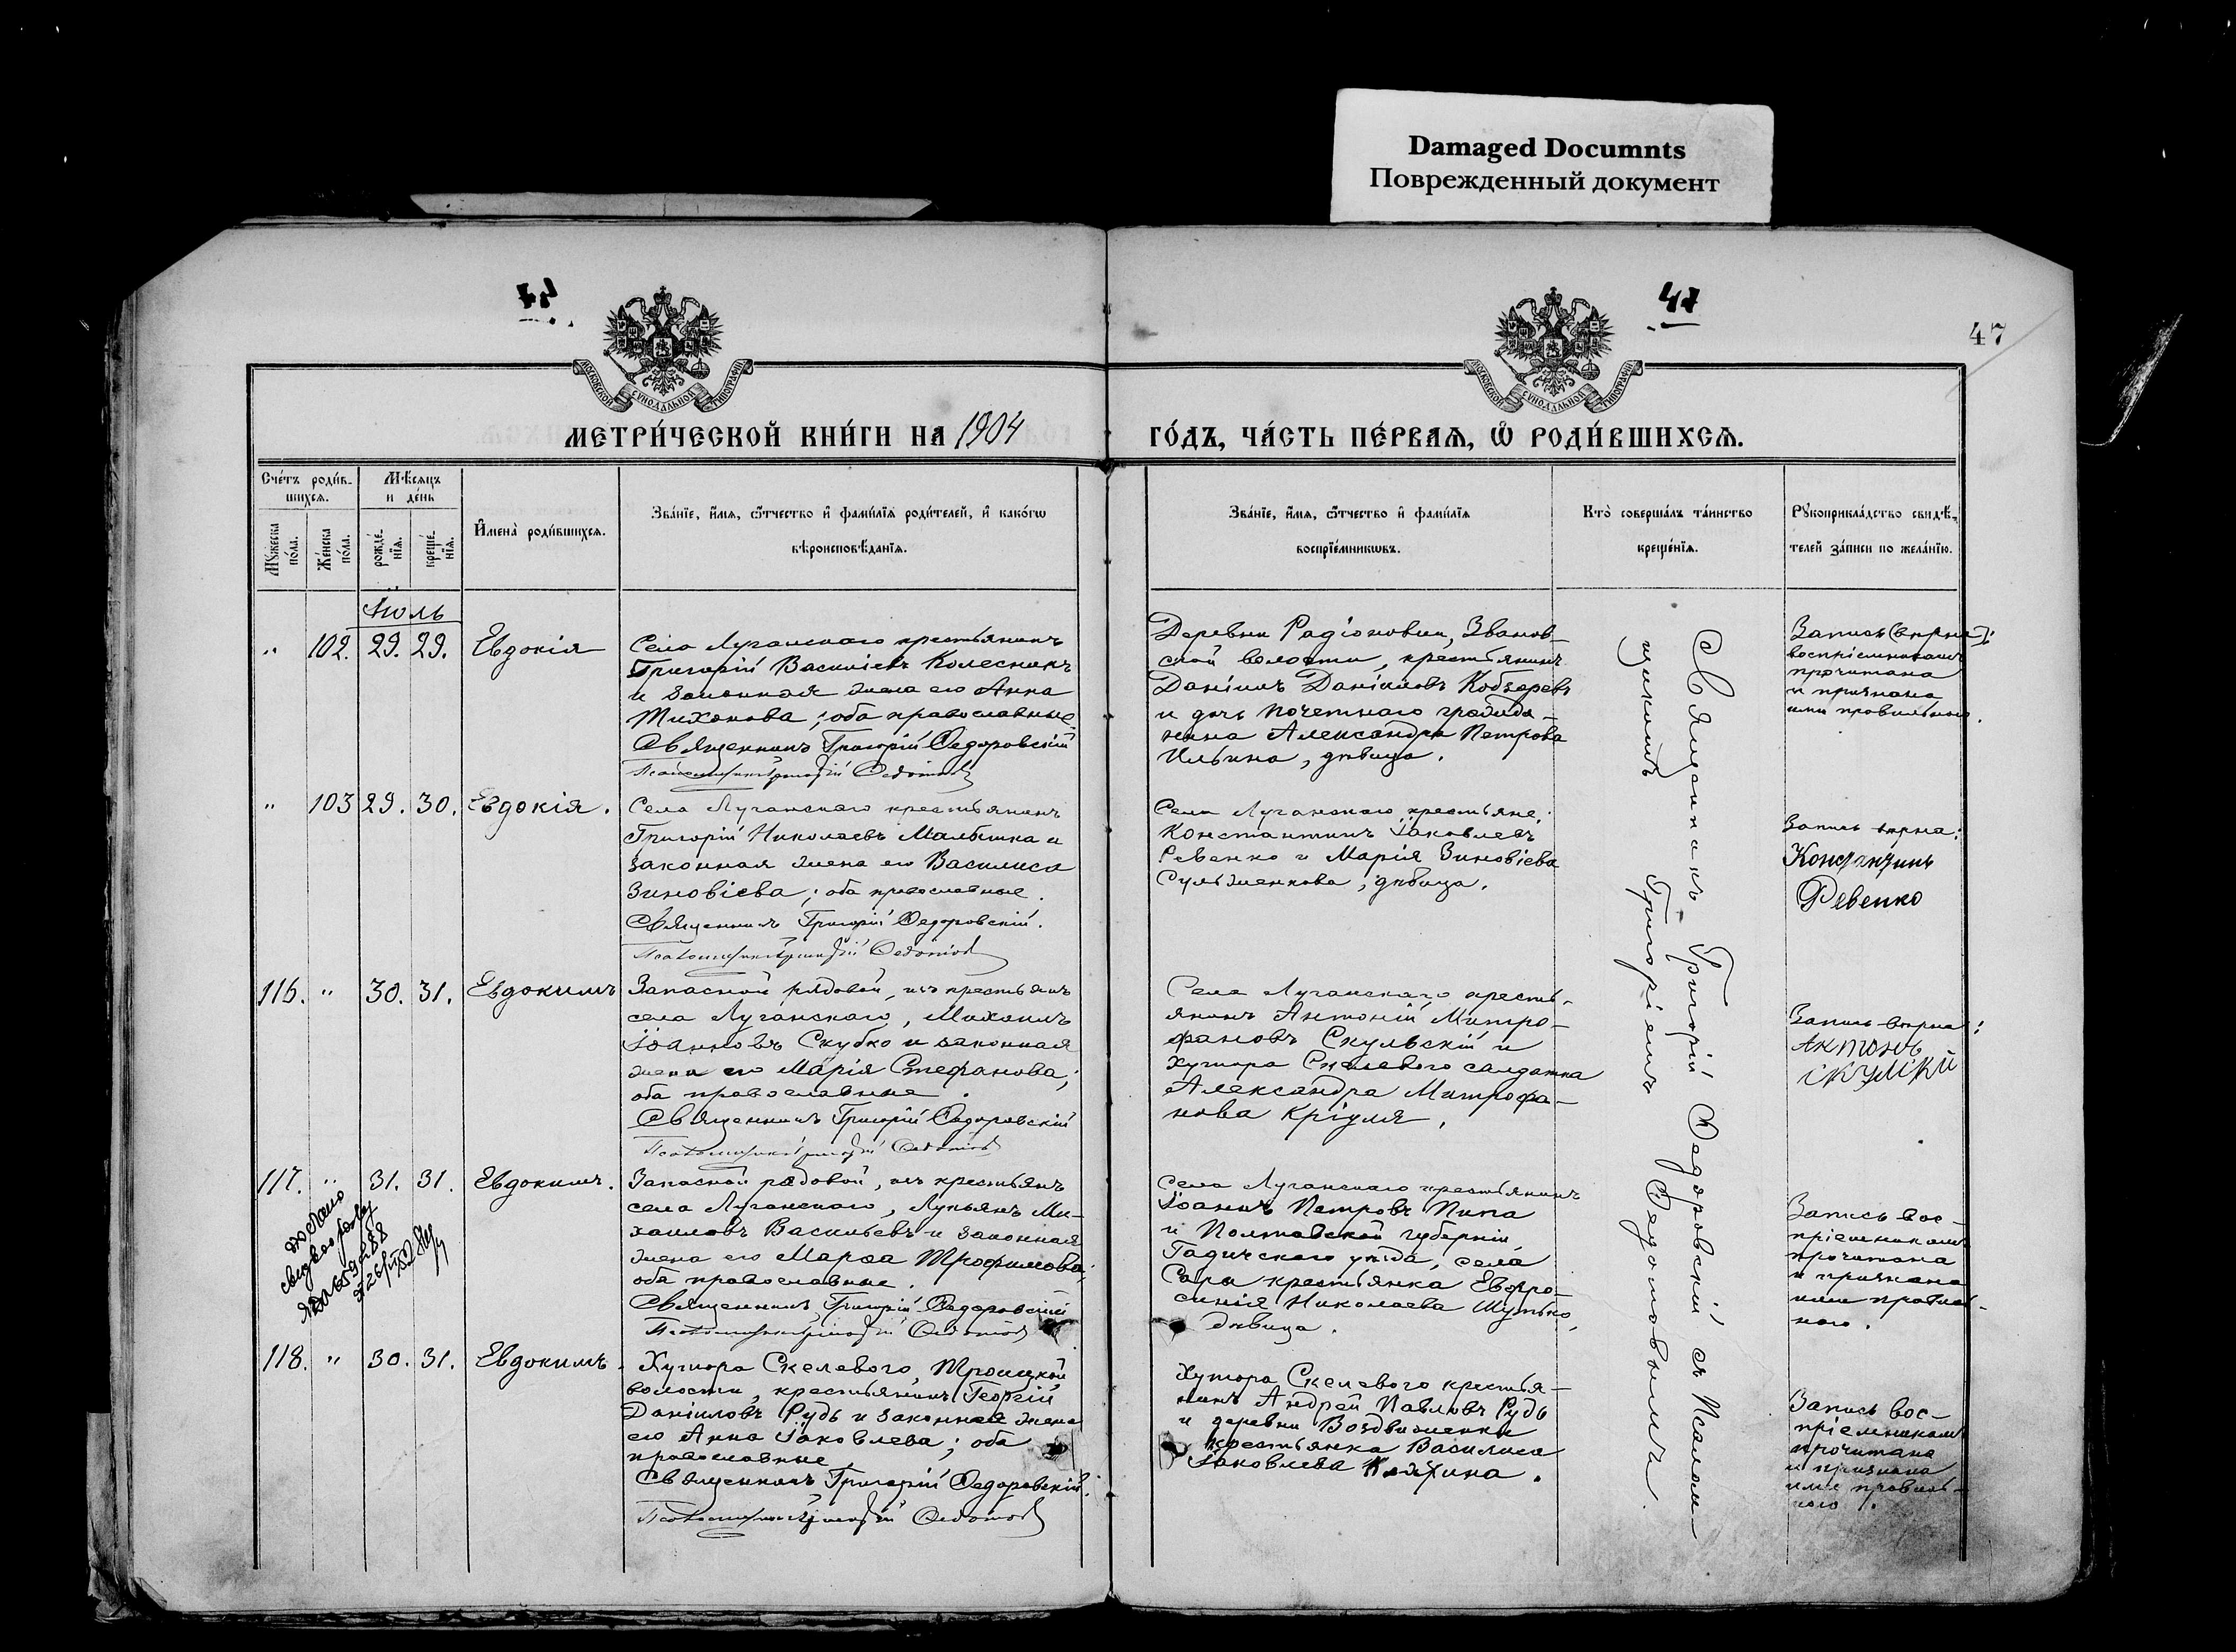 Damaged Documnts
Поврежденный документ
47
47
МОСКОВСКОЙ СѴНОДАЛЬНОЙ ТИПОГРАФІИ
МОСКОВСКОЙ СѴНОДАЛЬНОЙ ТИПОГРАФІИ
МЕТРИ́ЧЕСКОЙ КНИ́ГИ НА 1904
ГО́ДЪ, ЧА́СТЬ ПЕ́РВАѦ, Ѡ҆ РОДИ́ВШИХСѦ.
Сче́тъ роди́в-
шихсѧ.
Мѣ́сѧцъ
и де́нь
Мꙋ́жеска
по́ла.
Же́нска
по́ла.
рожде́-
нїѧ.
креще́-
нїѧ.
И҆мена̀ роди́вшихсѧ.
Зва́нїе, и҆́мѧ, ѻ҆́тчество и҆ фами́лїѧ роди́телей, и҆ како́гѡ
вѣроисповѣ́данїѧ.
Зва́нїе, и҆́мѧ, ѻ҆́тчество и҆ фами́лїѧ
воспрїе́мникѡвъ.
Кто̀ соверша́лъ та́инство
креще́нїѧ.
Рꙋкоприкла́дство свидѣ́-
телей за́писи по жела́нїю.
Іюль
" 102. 29. 29. Евдокія
Села Луганскаго крестьянинъ
Григорій Василіевъ Колесникъ
и законная жена его Анна
Тихонова; оба православные.
Священникъ Григорій Федоровскій
Псаломщикъ Григорій Федотовъ
Деревни Радіоновки, Званов-
ской волости, крестьянинъ
Даніилъ Даніиловъ Кобзаревъ
и дочь почетнаго гражда-
нина Александра Петрова
Ильина, дѣвица.
Запись вѣрна:
воспріемниками
прочитана
и признана
ими правильною.
" 103 29. 30. Евдокія.
Села Луганскаго крестьянинъ
Григорій Николаевъ Малышка и
законная жена его Василиса
Зиновіева; оба православные.
Священникъ Григорій Федоровскій.
Псаломщикъ Григорій Федотовъ
Села Луганскаго крестьяне:
Константинъ Іаковлевъ
Ревенко и Марія Зиновіева
Сульженкова, дѣвица.
Запись вѣрна:
Константинъ
Ревенко
116. " 30. 31. Евдокимъ
Запасной рядовой, изъ крестьянъ
села Луганскаго, Михаилъ
Іоанновъ Скубко и законная
жена его Марія Стефанова;
оба православные.
Священникъ Григорій Федоровскій
Псаломщикъ Григорій Федотовъ
Села Луганскаго кресть-
янинъ Антоній Митро-
фановъ Скульскій и
хутора Скелеваго солдатка
Александра Митрофа-
нова Кріуля.
Запись вѣрна:
Антонъ
117. " 31. 31. Евдокимъ.
Запасной рядовой, изъ крестьянъ
села Луганскаго, Лукьянъ Ми-
хаиловъ Васильевъ и законная
жена его Марѳа Трофимова;
оба православные.
Священникъ Григорій Федоровскій
Псаломщикъ Григорій Федотовъ
Села Луганскаго крестьянинъ
Іоаннъ Петровъ Пипа
и Полтавской губерніи
Гадичскаго уѣзда, села
Сары крестьянка Евфро-
синія Николаева Шутько,
дѣвица.
Запись вос-
пріемниками
прочитана
и признана
ими правиль-
ною.
118. " 30. 31. Евдокимъ.
Хутора Скелеваго, Троицкой
волости, крестьянинъ Георгій
Даніиловъ Рудь и законная жена
его Анна Іаковлева; оба
православные
Священникъ Григорій Федоровскій.
Псаломщикъ Григорій Федотовъ
Хутора Скелеваго крестья-
нинъ Андрей Павловъ Рудь
и деревни Воздвиженки
крестьянка Василиса
Іаковлева
Запись вос-
пріемниками
прочитана
и признана
ими правиль-
ною.
Священникъ Григорій Федоровскій съ Псалом-
щикомъ Григоріемъ Федотовымъ.